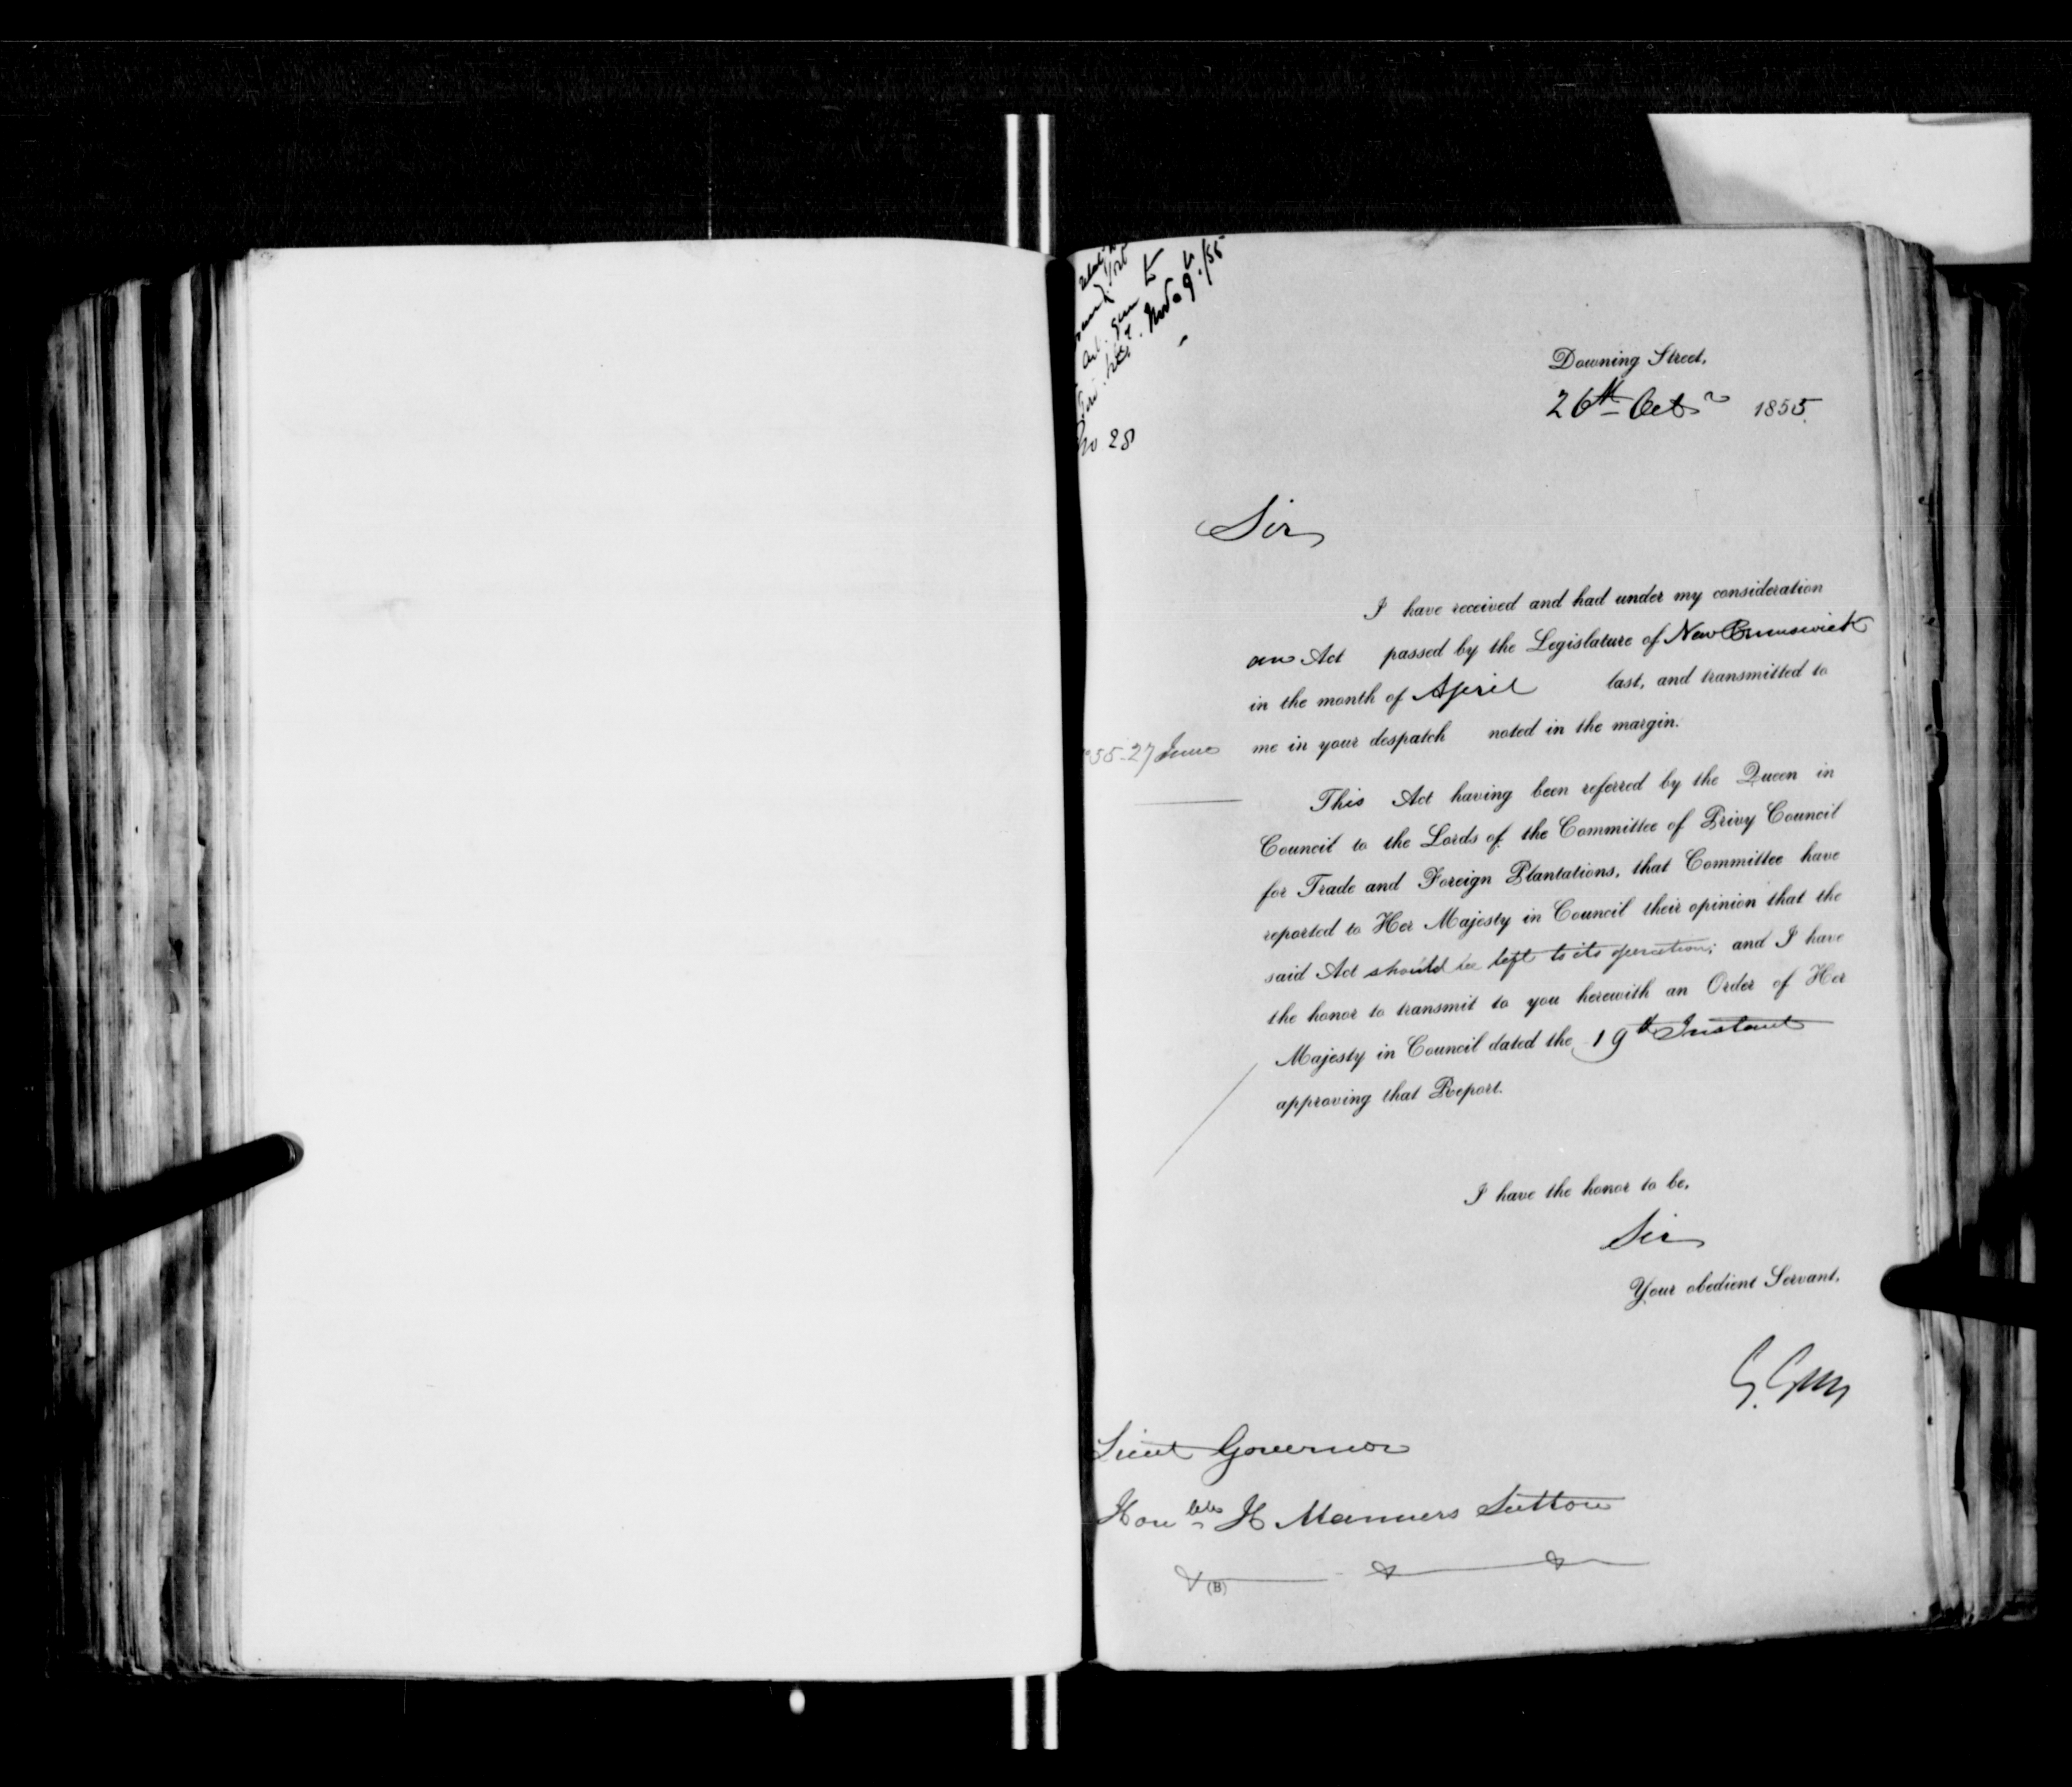 Nov 9./55
No 28
Downing Street,
26th Octr 1855.
Sir
I have received and had under my consideration
an Act passed by the Legislature of New Brunswick
in the month of April last, and transmitted to
me in your despatch noted in the margin.
55-27 June
This Act having been referred by the Queen in
Council to the Lords of the Committee of Privy Council
for Trade and Foreign Plantations, that Committee have
reported to Her Majesty in Council their opinion that the
said Act should be left to its operation; and I have
the honor to transmit to you herewith an Order of Her
Majesty in Council dated the 19th Instant
approving that Report.
I have the honor to be,
Sir
Your obedient Servant,
G. Grey
Lieut Governor
Honble H Manners Sutton
& & &
(B)